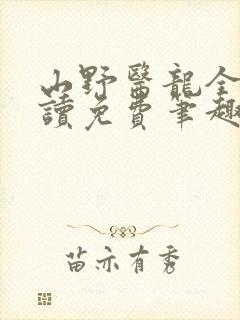 山野醫龍全
讀免費筆趣
苗亦有秀